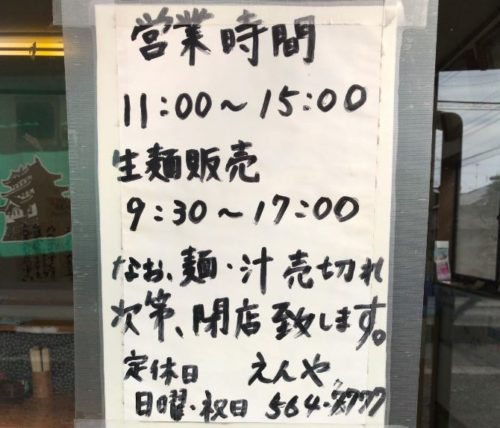 営業時間
11:00〜15:00
生麺販売
9:30〜17:00
なお、麺・汁売切れ
次第、閉店致します。
定休日 えんや
日曜・祝日 564-7777